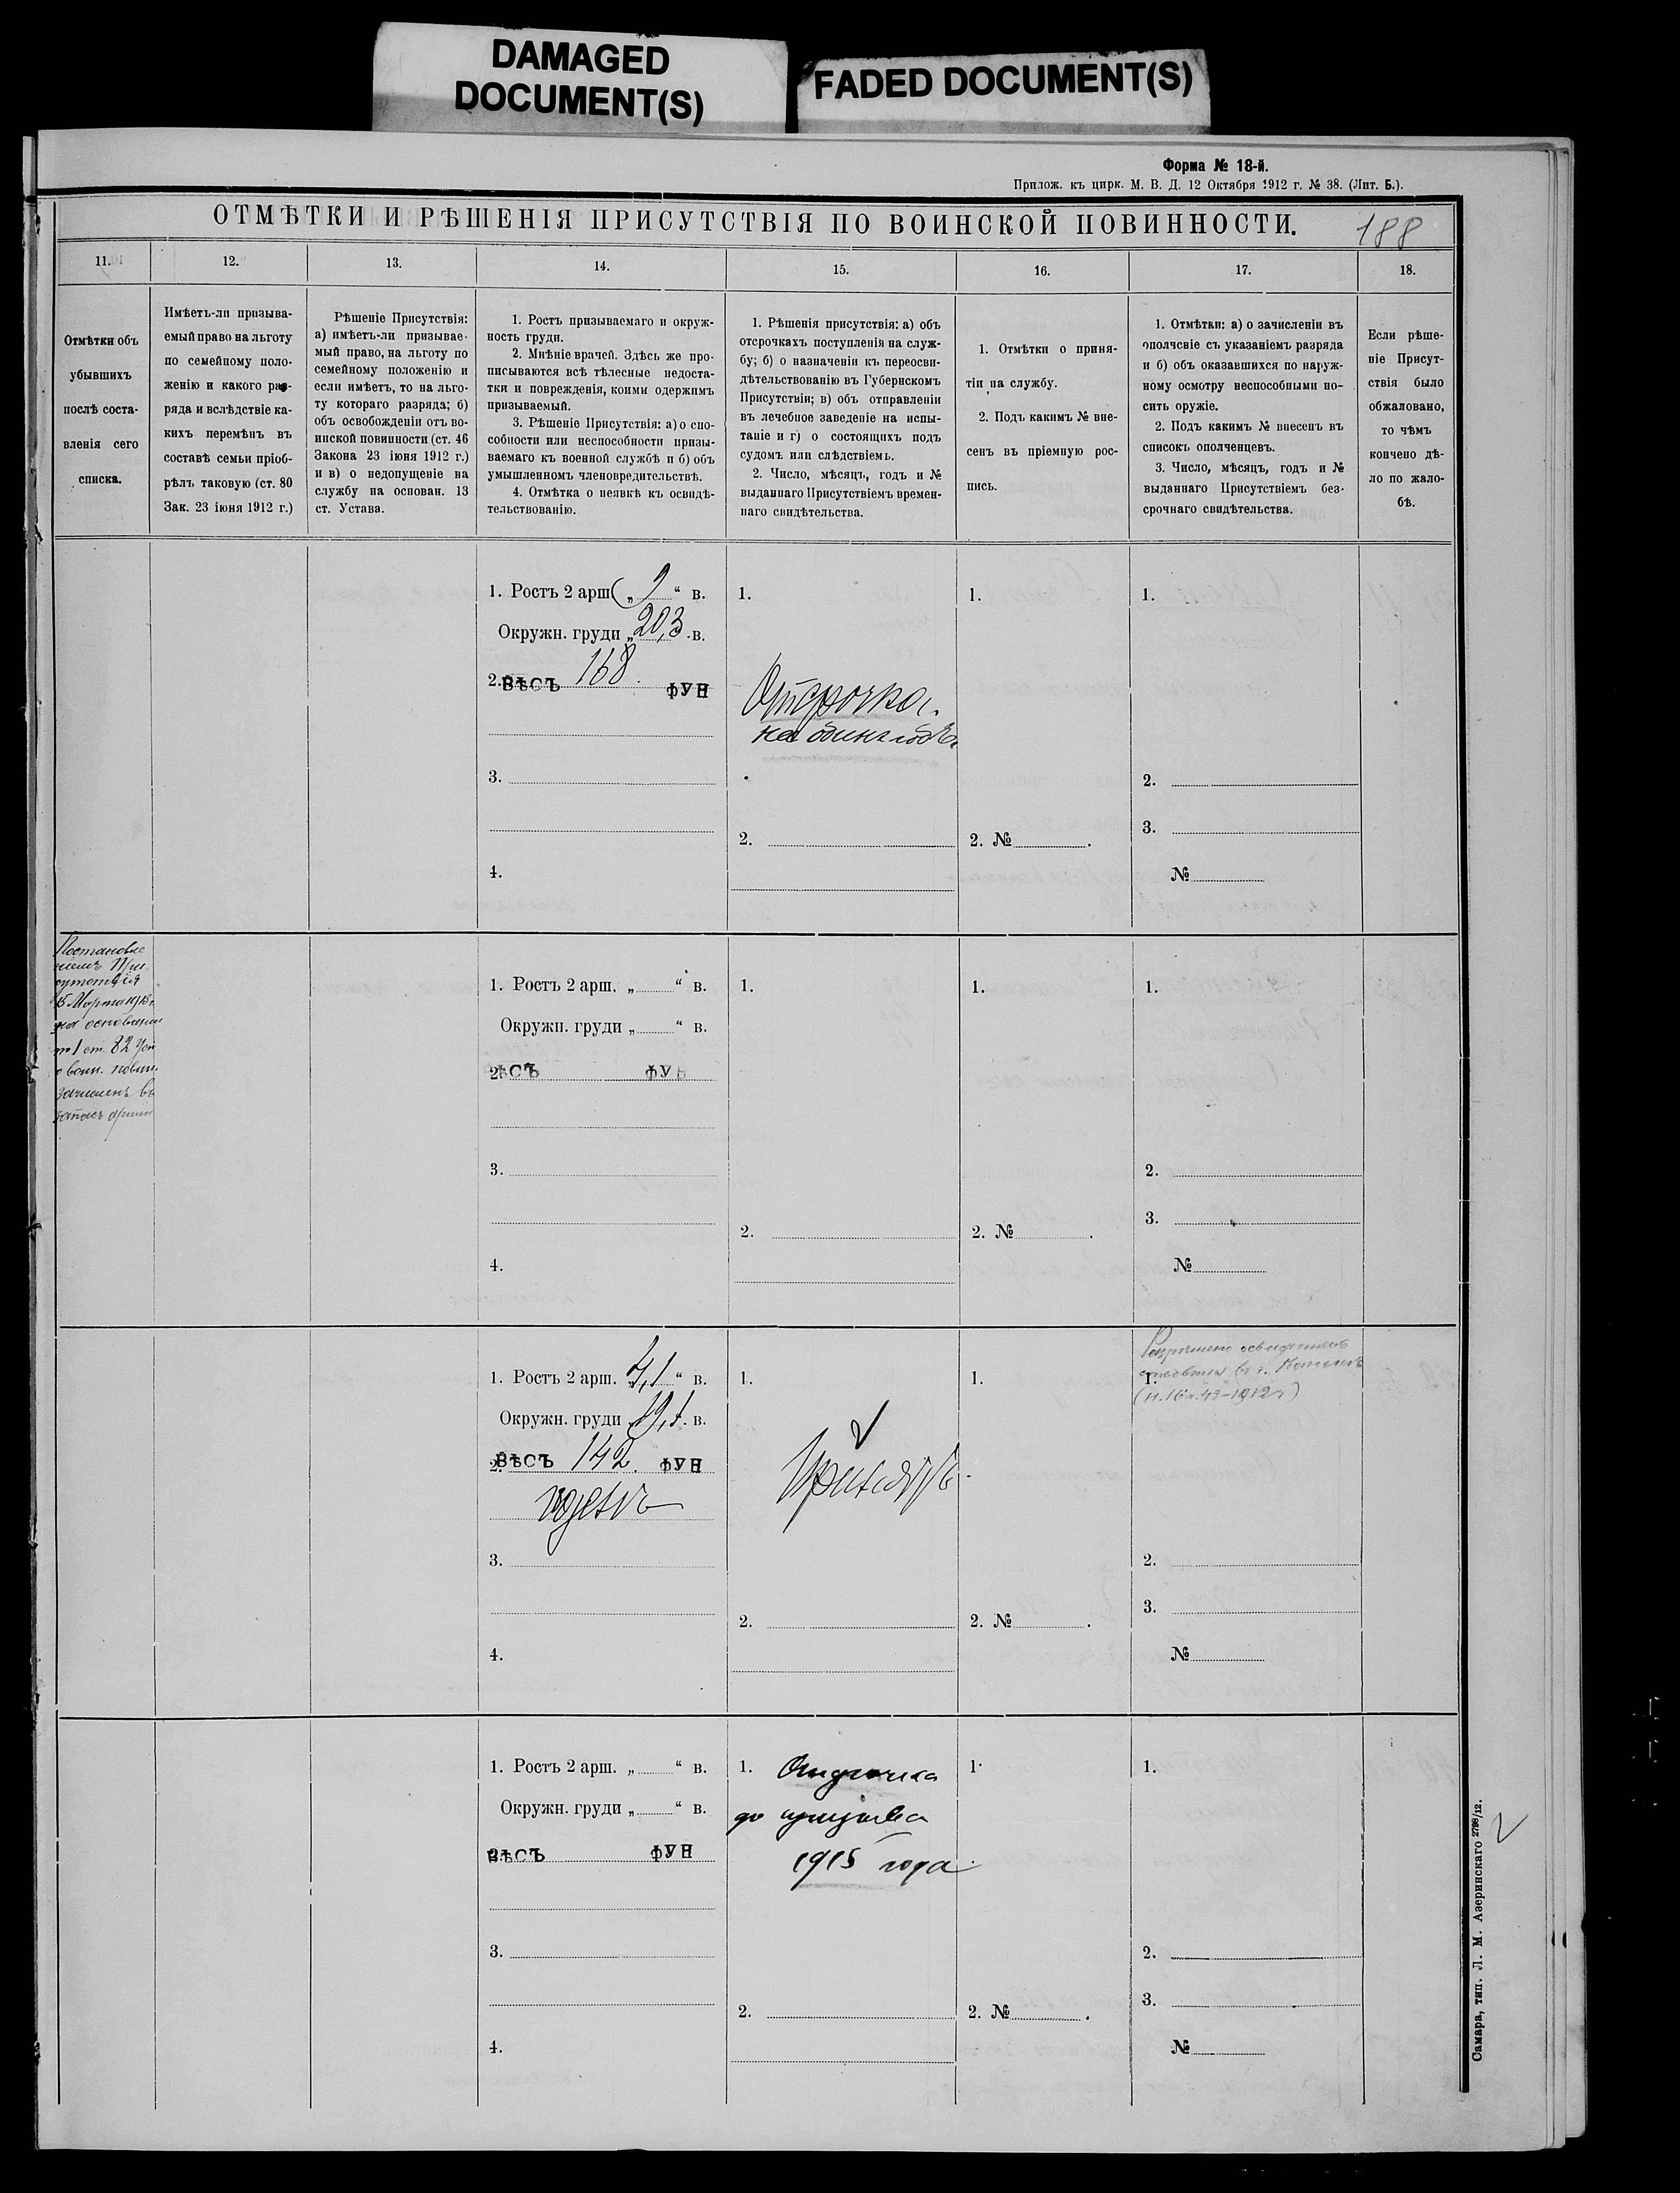 DAMAGED
DOCUMENT(S)
FADED DOCUMENT(S)
Форма № 18-й.
Прилож. къ цирк. М. В. Д. 12 Октября 1912 г. № 38. (Лит. Б.).
ОТМѢТКИ И РѢШЕНІЯ ПРИСУТСТВІЯ ПО ВОИНСКОЙ ПОВИННОСТИ.
188
11.
12.
13.
14.
15.
16.
17.
18.
Отмѣтки объ
убывшихъ
послѣ соста-
вленія сего
списка.
Имѣетъ-ли призыва-
емый право на льготу
по семейному поло-
женію и какого раз-
ряда и вслѣдствіе ка-
кихъ перемѣнъ въ
составѣ семьи пріоб-
рѣлъ таковую (ст. 80
Зак. 23 іюня 1912 г.)
Рѣшеніе Присутствія:
а) имѣетъ-ли призывае-
мый право, на льготу по
семейному положенію и
если имѣетъ, то на льго-
ту котораго разряда; б)
объ освобожденіи отъ во-
инской повинности (ст. 46
Закона 23 іюня 1912 г.)
и в) о недопущеніе на
службу на основан. 13
ст. Устава.
1. Ростъ призываемаго и окруж-
ность груди.
2. Мнѣніе врачей. Здѣсь же про-
писываются всѣ тѣлесные недоста-
тки и поврежденія, коими одержимъ
призываемый.
3. Рѣшеніе Присутствія: а) о спо-
собности или неспособности призы-
ваемаго къ военной службѣ и б) объ
умышленномъ членовредительствѣ.
4. Отмѣтка о неявкѣ къ освидѣ-
тельствованію.
1. Рѣшенія присутствія: а) объ
отсрочкахъ поступленій на служ-
бу; б) о назначеніи къ переосви-
дѣтельствованію въ Губернскомъ
Присутствіи; в) объ отправленіи
въ лечебное заведеніе на испы-
таніе и г) о состоящихъ подъ
судомъ или слѣдствіемъ.
2. Число, мѣсяцъ, годъ и №
выданнаго Присутствіемъ времен-
наго свидѣтельства.
1. Отмѣтки о приня-
тіи на службу.
2. Подъ какимъ № вне-
сенъ въ пріемную рос-
пись.
1. Отмѣтки: а) о зачисленіи въ
ополчсвіе съ указаніемъ разряда
и б) объ оказавшихся по наруж-
ному осмотру неспособными но-
сить оружіе.
2. Подъ какимъ № внесенъ въ
списокъ ополченцевъ.
3. Число, мѣсяцъ, годъ и №
выданнаго Присутствіемъ без-
срочнаго свидѣтельства.
Если рѣше-
ніе Присут-
ствія было
обжаловано,
то чѣмъ
кончено дѣ-
ло по жало-
бѣ.
1. Ростъ 2 арш. „ 9 “ в.
Окружн. груди „ 20,3 в.
2. ВѢСЪ 168 ФУН
3.
4.
1.
Отсрочка
на одинъ годъ
2.
1.
2. №
1.
2.
3.
№
Постановле
ніемъ При
сутствія
15 Марта 1913 г.
на основаніи
п 1 ст. 82 Уст
о воин. повин.
зачисленъ въ
запасъ арміи
1. Ростъ 2 арш. „ “ в.
Окружн. груди „ “ в.
2. ВѢСЪ ФУН
3.
4.
1.
2.
1.
2. №
1.
2.
3.
№
1. Ростъ 2 арш. 4,1 “ в.
Окружн. груди 19,1 в.
2. ВѢСЪ 142 ФУН
годенъ
3.
4.
1.
Принятъ
2.
1.
2. №
Разрешено освидетель
ствоваться въ г.
1.
2.
3.
№
1. Ростъ 2 арш. „ “ в.
Окружн. груди „ “ в.
2. ВѢСЪ ФУН
3.
4.
1. Отсрочка
до призыва
1915 года
2.
1.
2. №
1.
2.
3.
№
Самара, тип. Л. М. Азеринскаго 2798/12.